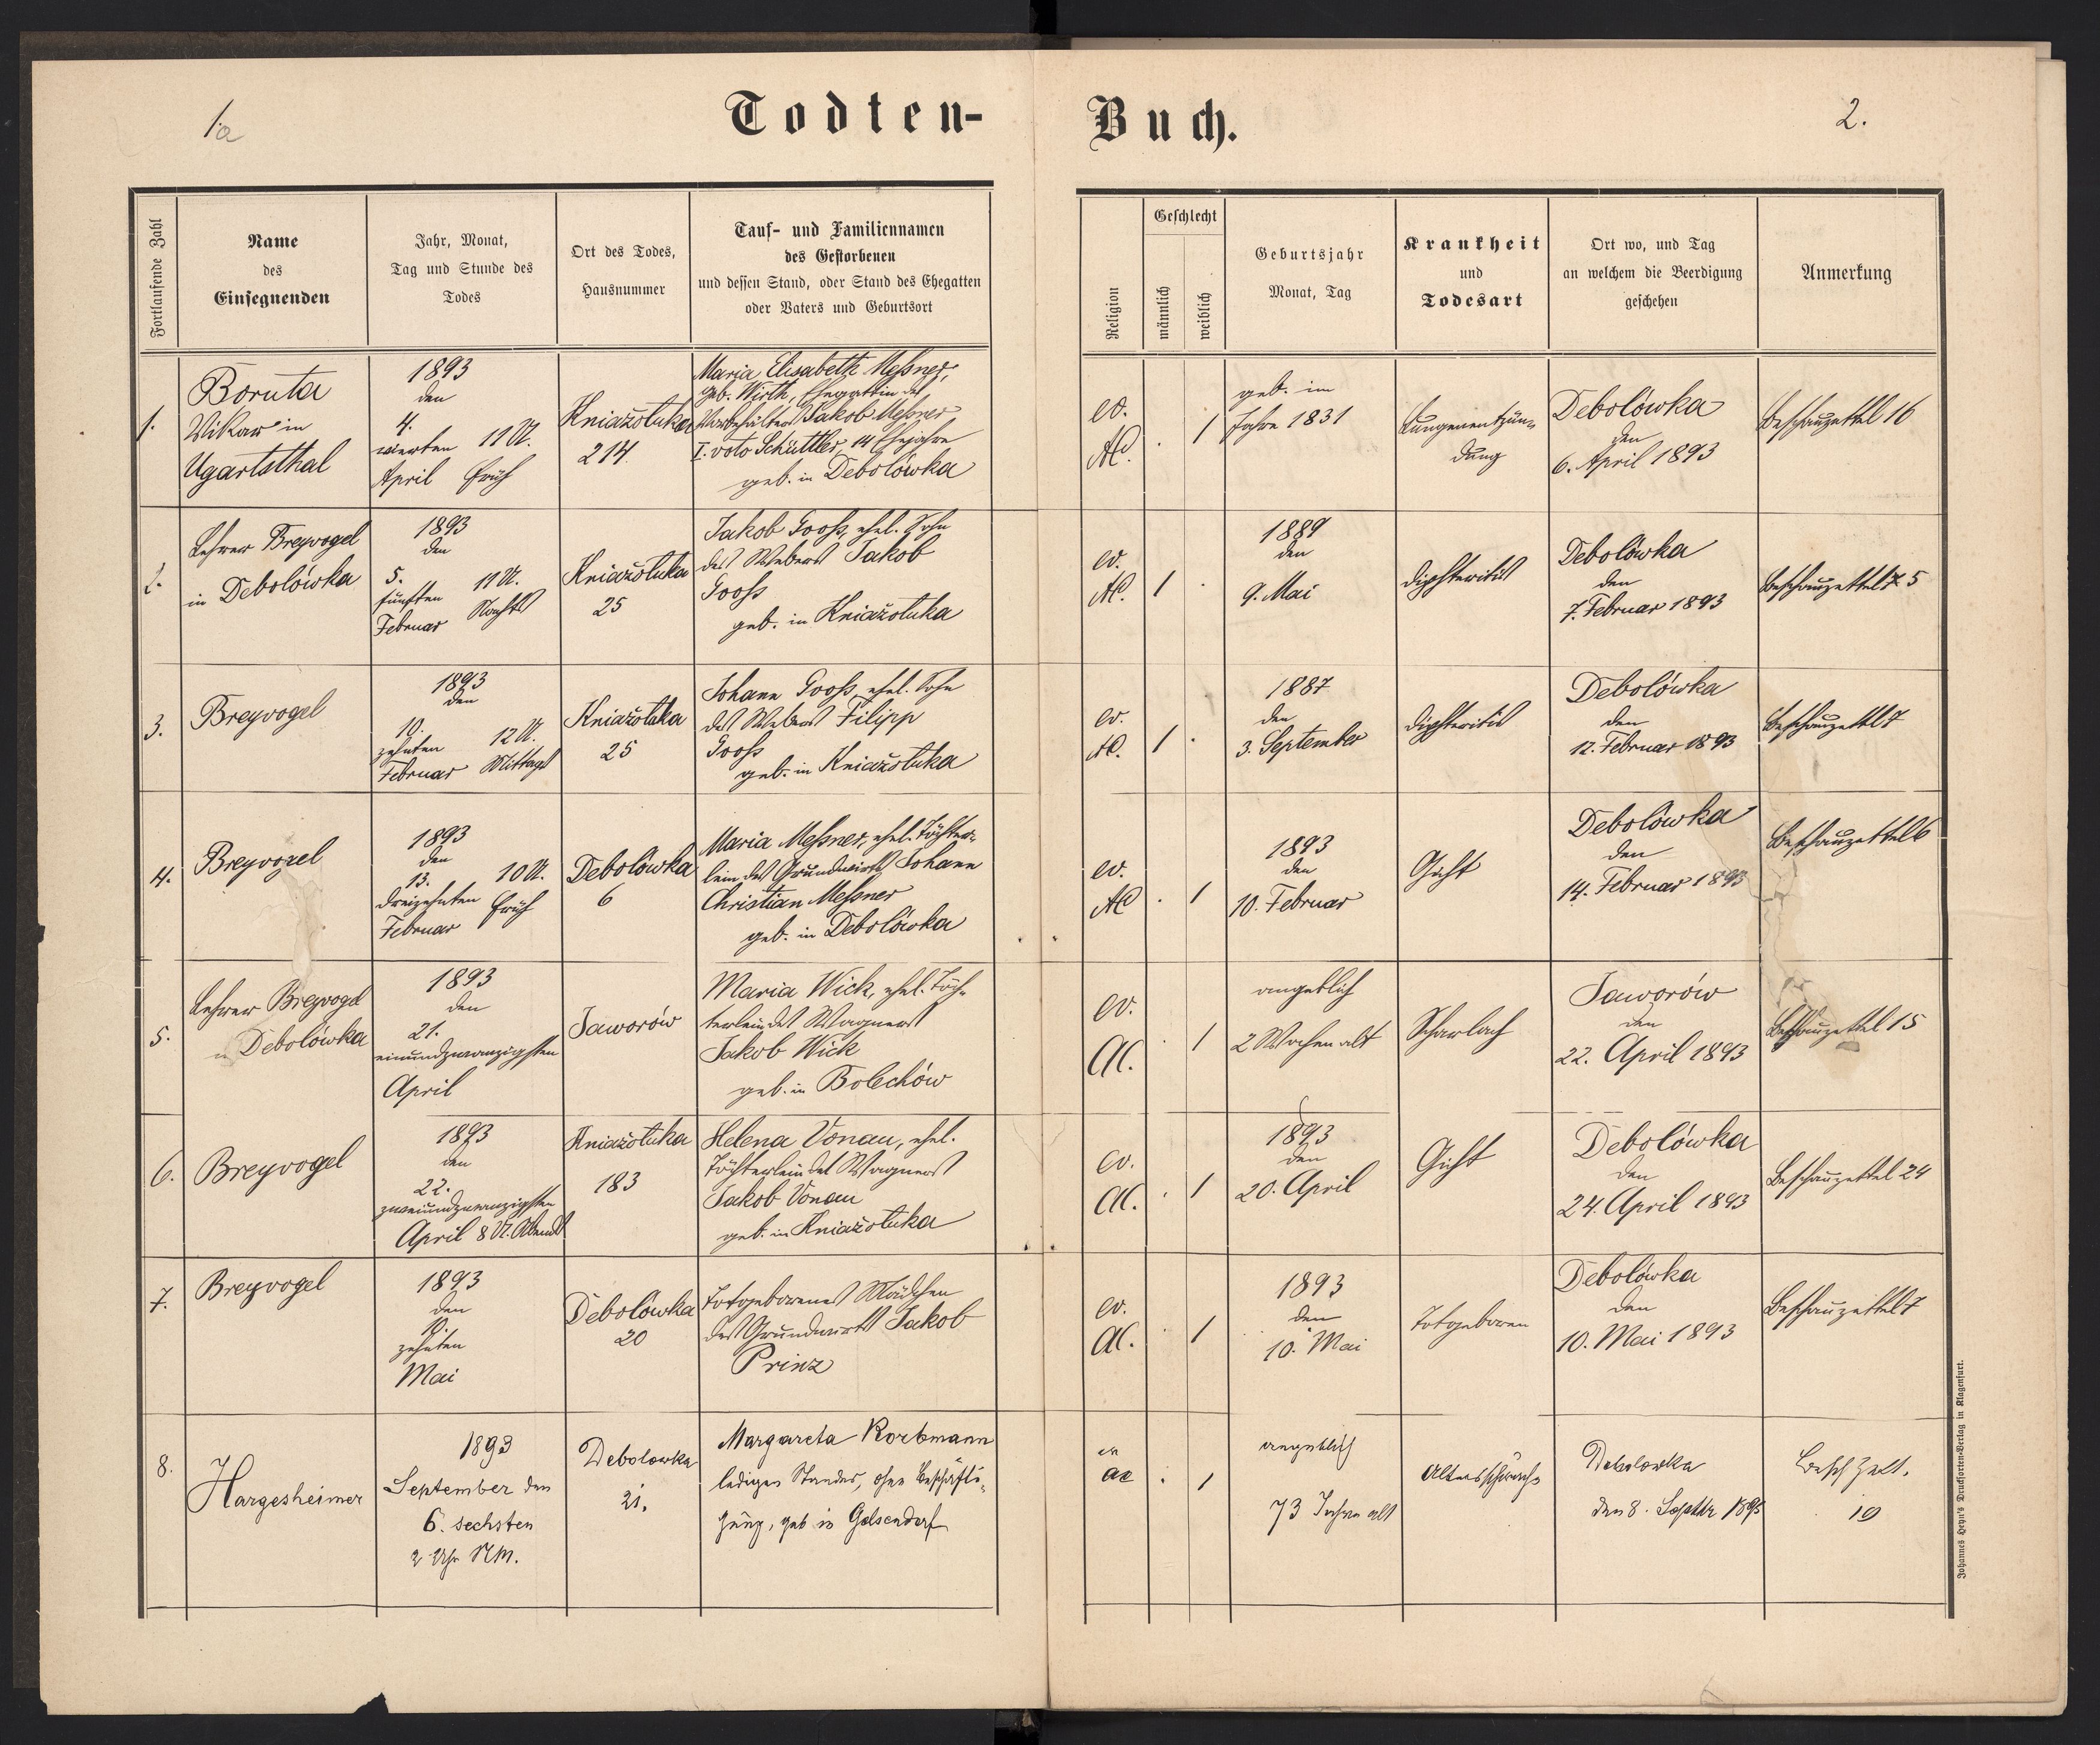 1a
Todten-
Buch.
2.
Fortlaufende Zahl
Name
des
Einsegnenden
Jahr, Monat,
Tag und Stunde des
Todes
Ort des Todes,
Hausnummer
Tauf- und Familiennamen
des Gestorbenen
und dessen Stand, oder Stand des Ehegatten
oder Vaters und Geburtsort
Religion
Geschlecht
männlich
weiblich
Geburtsjahr
Monat, Tag
Krankheit
und
Todesart
Ort wo, und Tag
an welchem die Beerdigung
geschehen
Anmerkung
1.
Boruta
Vikar in
Ugartsthal
1893
den
4.
vierten 11 U.
April früh
Kniażołuka
214
Maria Elisabeth Meßner,
geb. Wirth, Ehegattin des
Jakob Meßner
I. voto Schüttler, 14 Ehejahre
geb. in Debolówka
ev.
AC.
. 1
geb. im
Jahre 1831
Lungenentzün-
dung
Debolówka
den
6. April 1893
Beschauzettel 16
2.
Lehrer Breyvogel
in Debolówka
1893
den
5.
fünften 11 U.
Februar Nachts
Kniażołuka
25
Jakob Gooß, ehel. Sohn
des Webers Jakob
Gooß
geb. in Kniażołuka
ev.
AC.
1 .
1889
den
9. Mai
Diphteritis
Debolówka
den
7. Februar 1893
Beschauzettel 5
3.
Breyvogel
1893
den
10.
zehnten 12 U.
Februar Mittags
Kniażołuka
25
Johann Gooß, ehel. Sohn
des Webers Filipp
Gooß
geb. in Kniażołuka
ev.
AC.
1 .
1887
den
3. September
Diphteritis
Debolówka
den
12. Februar 1893
Beschauzettel 7
4.
Breyvogel
1893
den
13. 10 U.
dreizehnten früh
Februar
Debolówka
6
Maria Meßner, ehel. Töchter-
lein des Grundwirts Johann
Christian Meßner
geb. in Debolówka
ev.
AC
. 1
1893
den
10. Februar
Gicht
Debolówka
den
14. Februar 1893
Beschauzettel 6
5.
Lehrer Breyvogel
in Debolówka
1893
den
21.
einundzwanzigsten
April
Jaworów
Maria Wick, ehel. Töch-
terlein des Wagners
Jakob Wick
geb. in Bolechów
ev.
AC.
. 1
angeblich
2 Wochen alt
Scharlach
Jaworów
den
22. April 1893
Beschauzettel 15
6.
Breyvogel
1893
den
22.
zweiundzwanzigsten
April 8 U. Abends
Kniażołuka
183
Helena Vonau, ehel.
Töchterlein des Wagners
Jakob Vonau
geb. in Kniażołuka
ev.
AC.
. 1
1893
den
20. April
Gicht
Debolówka
den
24. April 1893
Beschauzettel 24
7.
Breyvogel
1893
den
10.
zehnten
Mai
Debolówka
20
Totgeborenes Mädchen
des Grundwirts Jakob
Prinz
ev.
AC.
. 1
1893
den
10. Mai
Totgeboren
Debolówka
den
10. Mai 1893
Beschauzettel 7
8.
Hargesheimer
1893
September den
6. sechsten
2 Uhr NM.
Debolowka
21.
Margareta Korbmann
ledigen Standes, ohne Beschäfti-
gung, geb in Gelsendorf
ev
ac
. 1
angeblich
73 Jahre alt
Altersschwäche
Debolowka
den 8. Septbr 1893
Besch Zett.
19
Johannes Heyn's Drucksorten-Verlag in Klagenfurt.